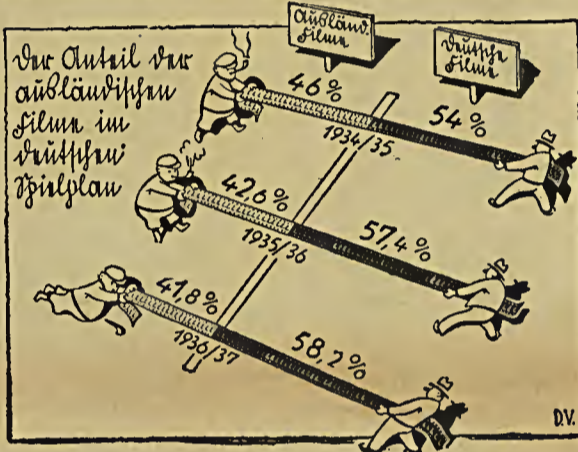 Der Anteil der
ausländischen
Filme im
deutschen
Spielplan
Ausländ.
Filme
Deutsche
Filme
46%
54%
1934/35
42,6%
57,4%
1935/36
41,8%
58,2%
1936/37
D.V.